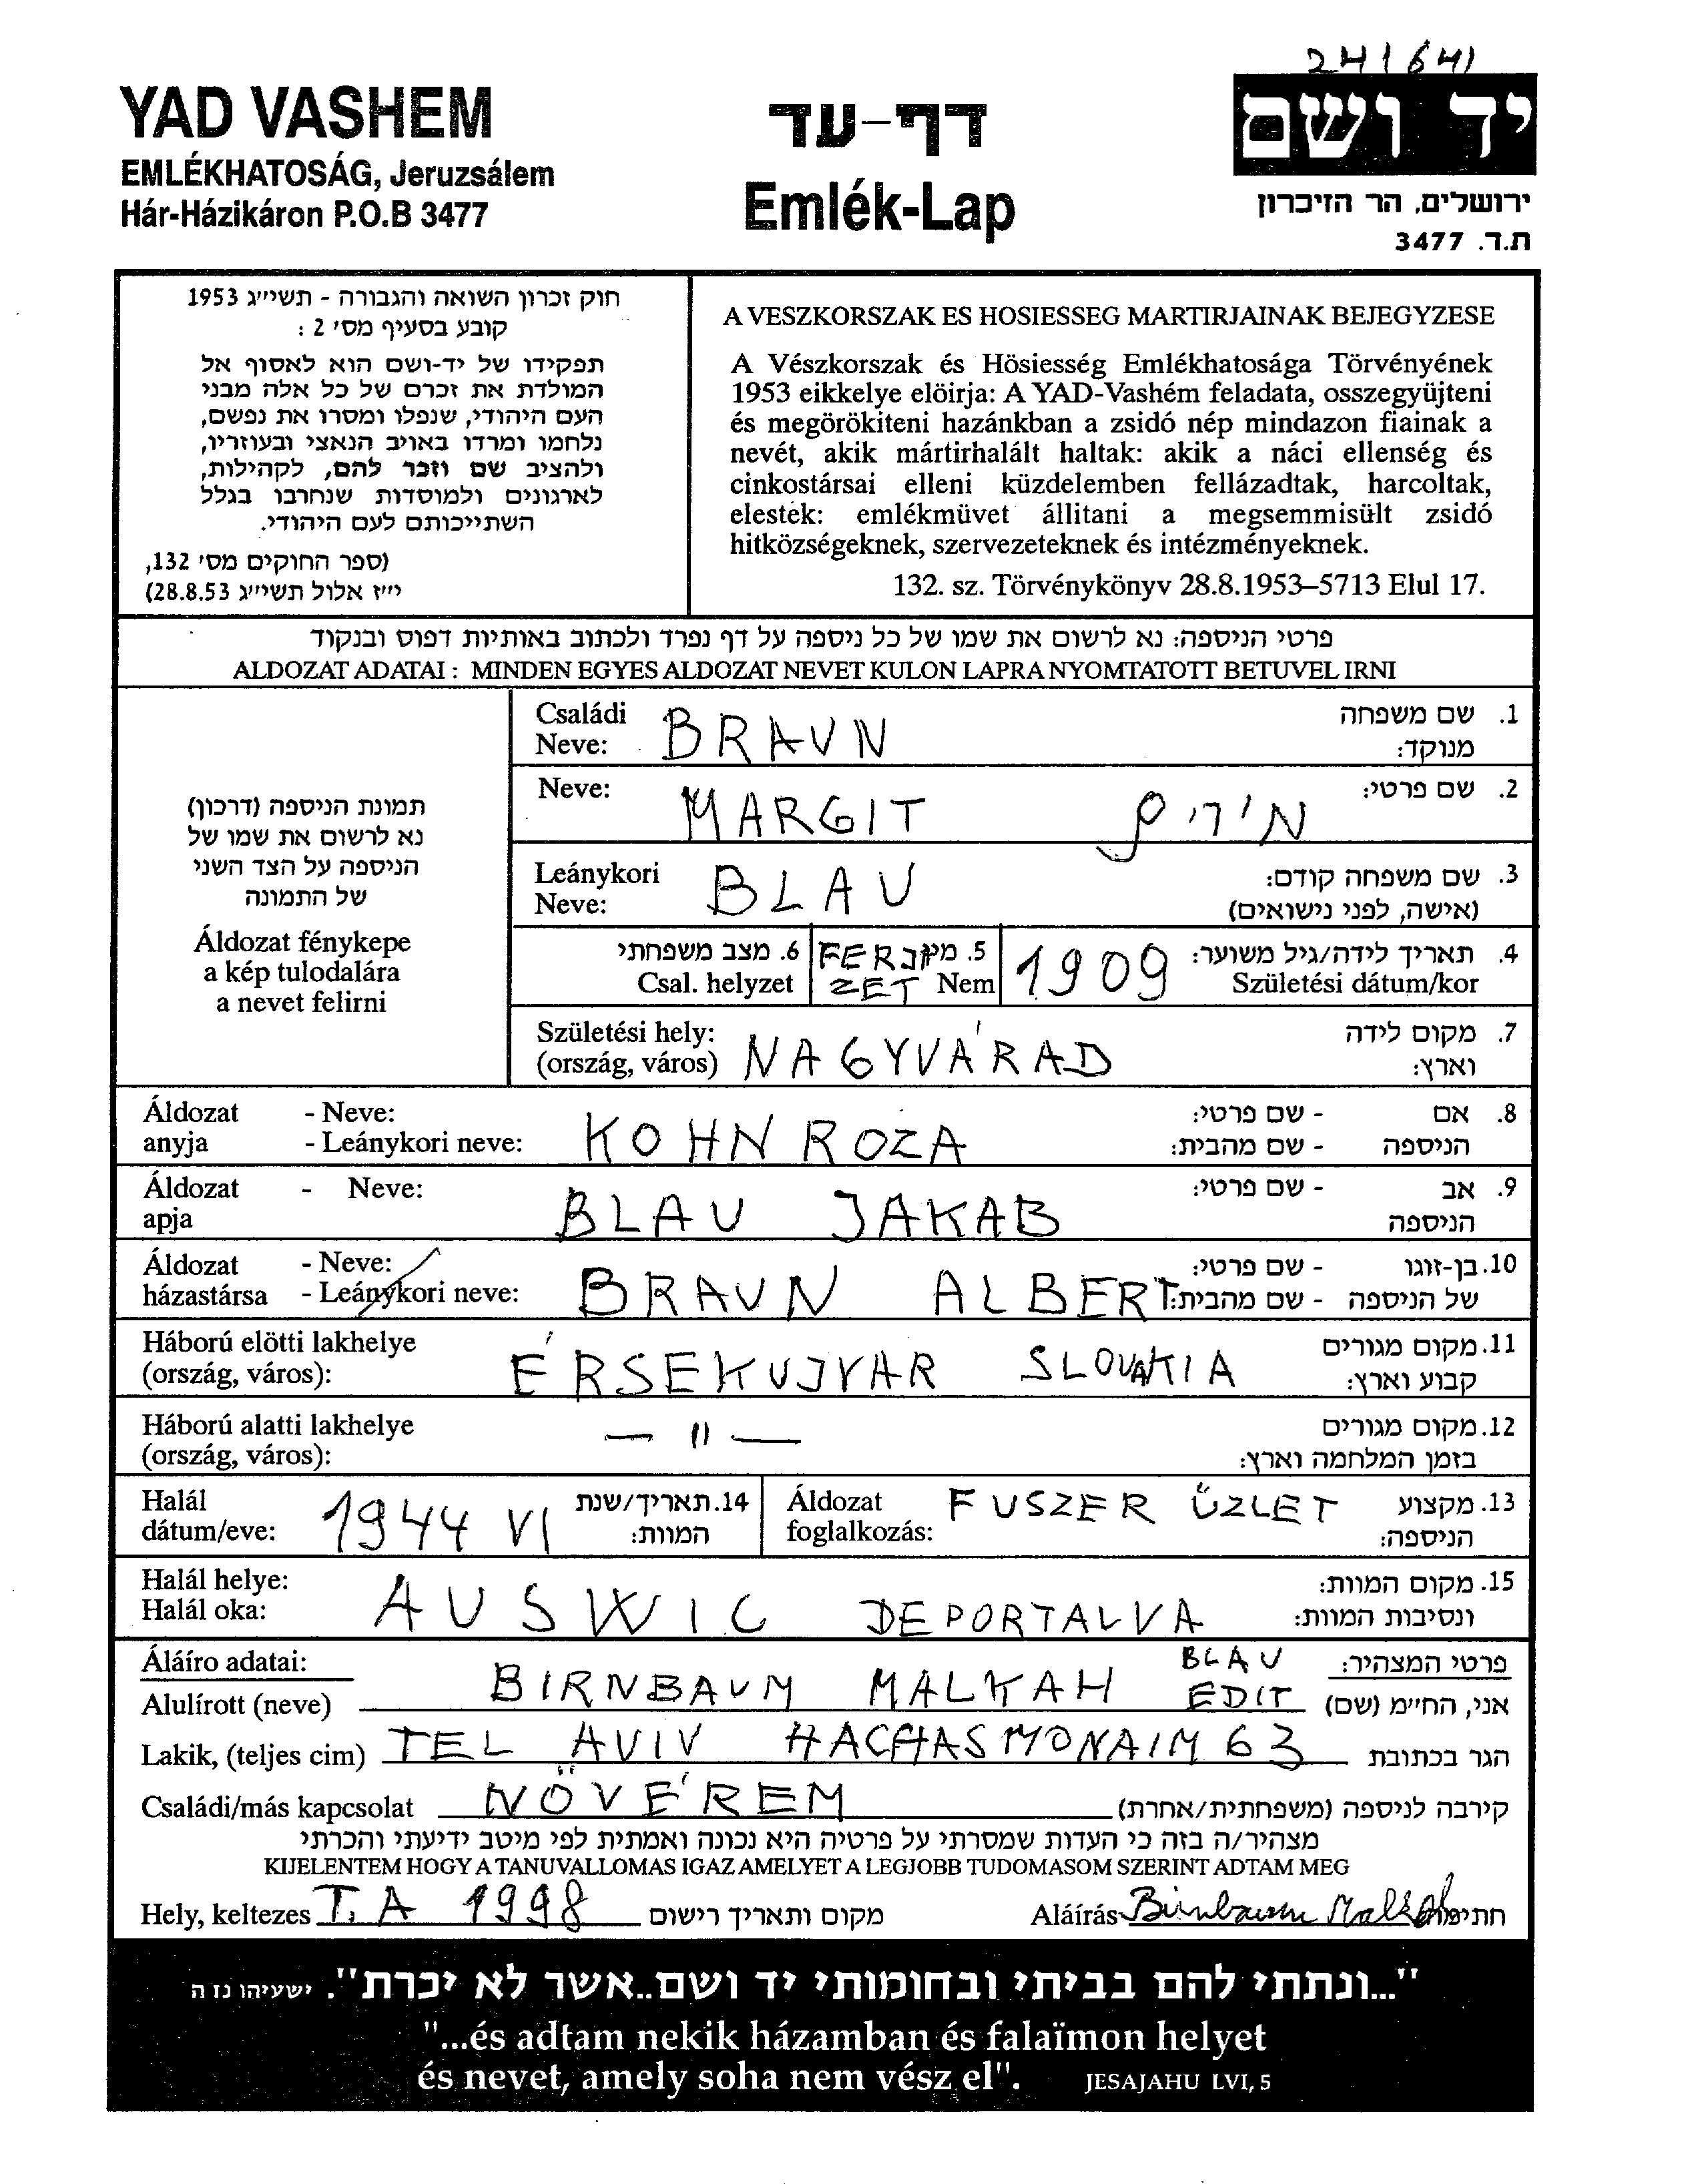 241641
YAD VASHEM
EMLÉKHATOSÁG, Jeruzsálem
Hár-Házikáron P.O.B 3477
דף-עד
Emlék-Lap
יד ושם
ירושלים, הר הזיכרון
ת.ד. 3477
חוק זכרון השואה והגבורה - תשי״ג 1953
קובע בסעיף מס׳ 2 :
תפקידו של יד-ושם הוא לאסוף אל
המולדת את זכרם של כל אלה מבני
העם היהודי, שנפלו ומסרו את נפשם,
נלחמו ומרדו באויב הנאצי ובעוזריו,
ולהציב שם וזכר להם, לקהילות,
לארגונים ולמוסדות שנחרבו בגלל
השתייכותם לעם היהודי.
(ספר החוקים מס׳ 132,
י״ז אלול תשי״ג 28.8.53)
A VESZKORSZAK ES HOSIESSEG MARTIRJAINAK BEJEGYZESE
A Vészkorszak és Hösiesség Emlékhatosága Törvényének
1953 eikkelye elöirja: A YAD-Vashém feladata, osszegyüjteni
és megörökiteni hazánkban a zsidó nép mindazon fiainak a
nevét, akik mártirhalált haltak: akik a náci ellenség és
cinkostársai elleni küzdelemben fellázadtak, harcoltak,
elestek: emlékmüvet állitani a megsemmisült zsidó
hitközségeknek, szervezeteknek és intézményeknek.
132. sz. Törvénykönyv 28.8.1953–5713 Elul 17.
פרטי הניספה: נא לרשום את שמו של כל ניספה על דף נפרד ולכתוב באותיות דפוס ובנקוד
ALDOZAT ADATAI : MINDEN EGYES ALDOZAT NEVET KULON LAPRA NYOMTATOTT BETUVEL IRNI
תמונת הניספה (דרכון)
נא לרשום את שמו של
הניספה על הצד השני
של התמונה
Áldozat fénykepe
a kép tulodalára
a nevet felirni
Családi
Neve: BRAUN
1. שם משפחה
מנוקד:
Neve: MARGIT מירים
2. שם פרטי:
Leánykori
Neve: BLAU
3. שם משפחה קודם:
(אישה, לפני נישואים)
6. מצב משפחתי
Csal. helyzet
FERJE
ZET
5. מין
Nem
1909
4. תאריך לידה/גיל משוער:
Születési dátum/kor
Születési hely:
(ország, város) NAGYVÁRAD
7. מקום לידה
וארץ:
Áldozat - Neve:
anyja - Leánykori neve: KOHN ROZA
8. אם - שם פרטי:
הניספה - שם מהבית:
Áldozat - Neve:
apja BLAU JAKAB
9. אב - שם פרטי:
הניספה
Áldozat - Neve:
házastársa - Leánykori neve: BRAUN ALBERT
10. בן-זוגו - שם פרטי:
של הניספה - שם מהבית:
Háború elötti lakhelye
(ország, város): ÉRSEKUJVAR SLOVAKIA
11. מקום מגורים
קבוע וארץ:
Háború alatti lakhelye
(ország, város): — 11 —
12. מקום מגורים
בזמן המלחמה וארץ:
Halál
dátum/eve: 1944 VI
14. תאריך/שנת
המוות:
Áldozat
foglalkozás: FUSZER ÜZLET
13. מקצוע
הניספה:
Halál helye:
Halál oka: AUSWIC DEPORTALVA
15. מקום המוות:
ונסיבות המוות:
Áláíro adatai:
פרטי המצהיר:
Alulírott (neve) BIRNBAUM MALKAH BLAU EDIT
אני, החי״מ (שם)
Lakik, (teljes cim) TEL AVIV HACHASMONAIM 63
הגר בכתובת
Családi/más kapcsolat NÖVÉREM
קירבה לניספה (משפחתית/אחרת)
מצהיר/ה בזה כי העדות שמסרתי על פרטיה היא נכונה ואמתית לפי מיטב ידיעתי והכרתי
KIJELENTEM HOGY A TANUVALLOMAS IGAZ AMELYET A LEGJOBB TUDOMASOM SZERINT ADTAM MEG
Hely, keltezes T.A 1998 מקום ותאריך רישום
Aláírás Birnbaum Malkah חתימה
"...ונתתי להם בביתי ובחומותי יד ושם..אשר לא יכרת". ישעיהו נז ה
"...és adtam nekik házamban és falaïmon helyet
és nevet, amely soha nem vész el". JESAJAHU LVI, 5